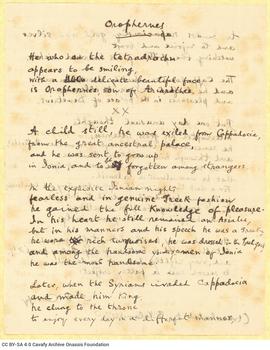 Orophernes
He who on the tetradrachm
appears to be smiling,
with a delicate beautiful face,
is Orophernes son of Ariarathes.
A child still, he was exiled from Cappadocia,
from the great ancestral palace,
and he was sent to grow up
in Ionia, and to forgotten among strangers
In the exquisite Ionian nights
fearless and in genuine Greek fashion
he gained the full knowledge of pleasure.
In his heart he still remained an Asiatic,
but in his manners and his speech he was a Greek,
he wore rich turquoises, he was dressed
and among the handsome young men of Ionia
he was the most handsome.
Later, when the Syrians invaded Cappadocia
and made him King
he clung to the throne
to enjoy every day in a different manner,
CC BY-SA 4.0 Cavafy Archive Onassis Foundation